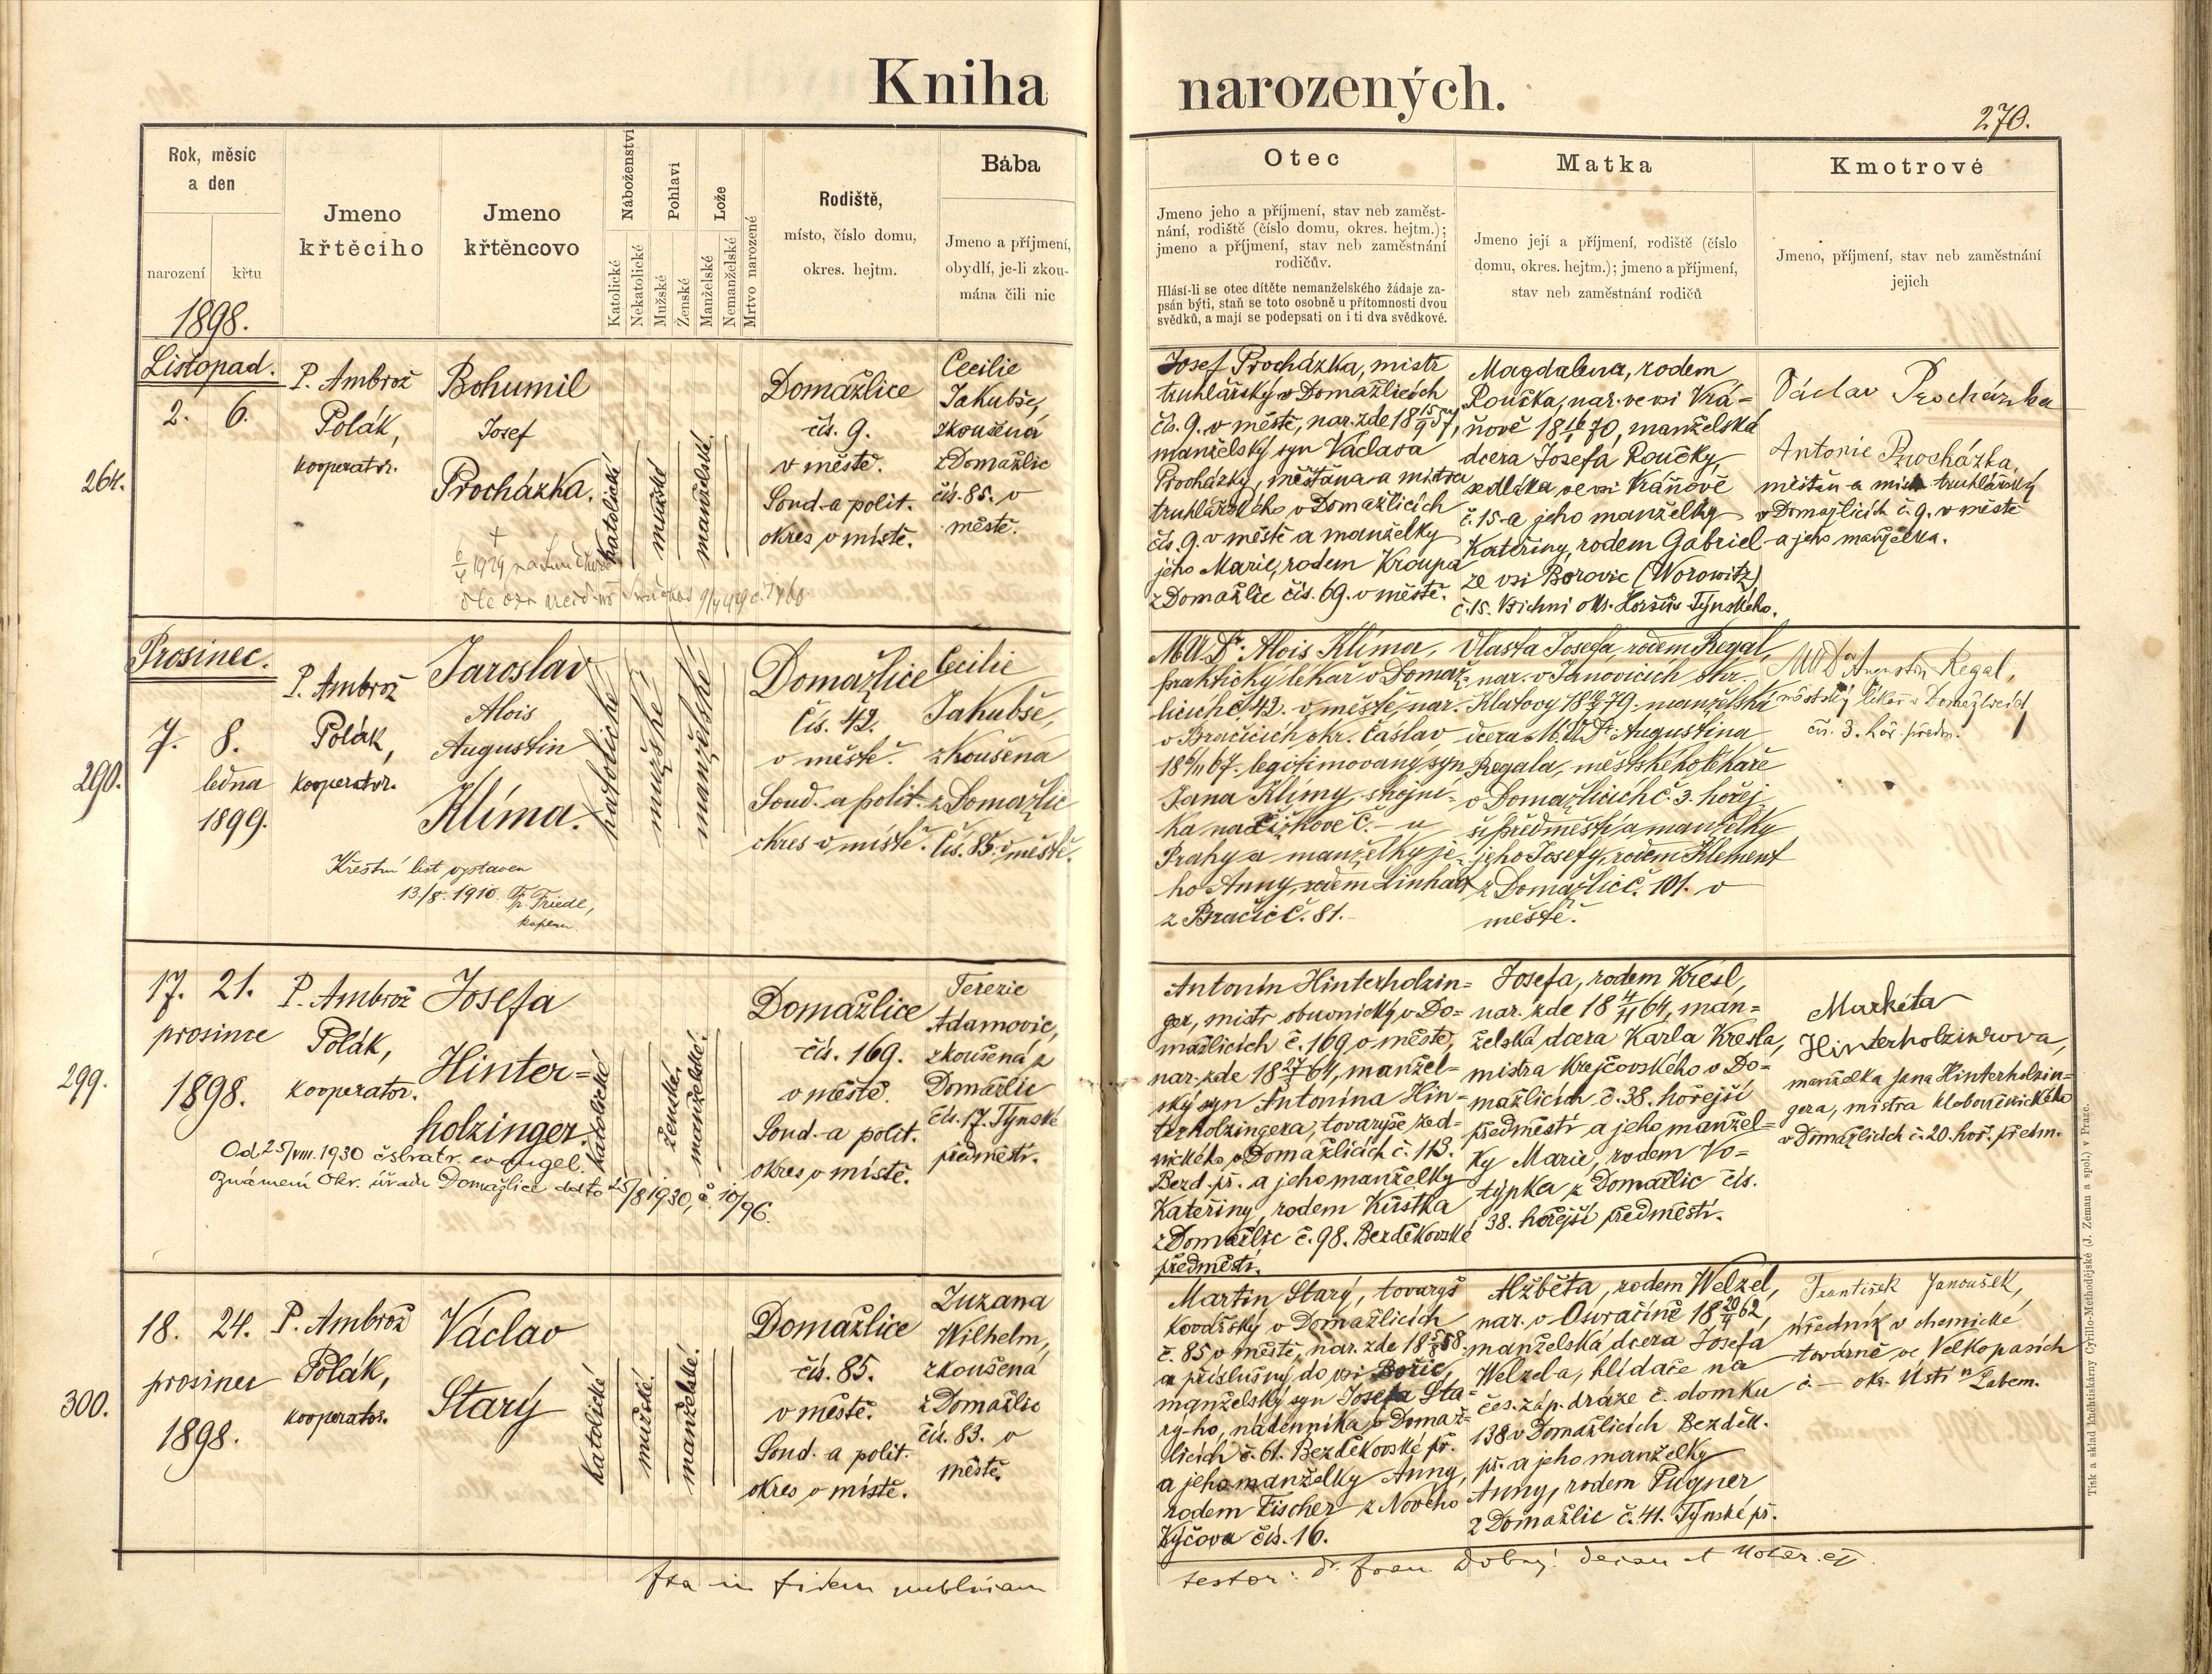 Kniha narozených.
270.
Rok, měsíc
a den
narození
křtu
Jmeno
křtěcího
Jmeno
křtěncovo
Náboženství
Katolické
Nekatolické
Pohlaví
Mužské
Ženské
Lože
Manželské
Nemanželské
Mrtvo narozené
Rodiště,
místo, číslo domu,
okres. hejtm.
Bába
Jmeno a příjmení,
obydlí, je-li zkou-
mána čili nic
Otec
Jmeno jeho a příjmení, stav neb zaměst-
nání, rodiště (číslo domu, okres. hejtm.);
jmeno a příjmení, stav neb zaměstnání
rodičův.
Hlásí-li se otec dítěte nemanželského žádaje za-
psán býti, staň se toto osobně u přítomnosti dvou
svědků, a mají se podepsati on i ti dva svědkové.
Matka
Jmeno její a příjmení, rodiště (číslo
domu, okres. hejtm.); jmeno a příjmení,
stav neb zaměstnání rodičů
Kmotrové
Jmeno, příjmení, stav neb zaměstnání
jejich
1898.
Listopad.
264.
2. 6.
P. Ambrož
Polák,
kooperator.
Bohumil
Josef
Procházka.
katolické
mužské
manželské.
Domažlice
čís. 9.
v městě.
Soud. a polit.
okres v místě.
Cecilie
Jakubše,
zkoušená
z Domažlic
čís. 85. v
městě.
Josef Procházka, mistr
truhlářský v Domažlicích
čís. 9. v městě, nar. zde 18 15/9 57,
manželský syn Václava
Procházky, měšťana a mistra
truhlářského v Domažlicích
čís. 9. v městě a manželky
jeho Marie, rodem Kroupa
z Domažlic čís. 69. v městě.
Magdalena, rodem
Roučka, nar. ve vsi Vrá-
nově 18 70, manželská
dcera Josefa Roučky,
sedláka ve vsi Vráňově
č. 15. a jeho manželky
Kateřiny, rodem Gabriel
ze vsi Borovic (Worowitz)
č. 15. Všichni okr. Horšův Týnského.
Václav Procházka
Antonie Procházka,
měšťan a mistr truhlářský
v Domažlicích č. 9. v městě
a jeho manželka.
Prosinec.
290.
7. 8.
ledna
1899.
P. Ambrož
Polák,
kooperator.
Jaroslav
Alois
Augustin
Klíma.
Křestní list vystaven
13./8. 1910. Fr. Friedl,
kaplan
katolické
mužské
manželské
Domažlice
čís. 42.
v městě.
Soud. a polit.
okres v místě.
Cecilie
Jakubše,
zkoušena
z Domažlic
čís. 85. v městě.
MUDr. Alois Klíma,
praktický lékař v Domaž-
licích č. 42. v městě, nar.
v Bračicích okr. Čáslav
18 67. legitimovaný syn
Jana Klímy, strojní-
ka na Žižkově č. — u
Prahy a manželky je-
ho Anny, rodem Linhart
z Bračic č. 81.
Vlasta Josefa, rodem Regal,
nar. v Janovicích okr.
Klatovy 18 79. manželská
dcera MUDr. Augustina
Regala, městského lékaře
v Domažlicích č. 3. hořej-
ší předměstí a manželky
jeho Josefy, rodem Klement
z Domažlic č. 101. v
městě.
MUDr Augustin Regal,
městský lékař v Domažlicích
čís. 3. hoř. předm.
299.
17. 21.
prosince
1898.
P. Ambrož
Polák,
kooperator.
Josefa
Hinter-
holzinger
Od 25/VIII. 1930 čsbratr. evangel.
Oznámení Okr. úřadu Domažlice dato 25/8 1930, č. 10/96.
katolické
ženské.
manželské.
Domažlice
čís. 169.
v městě.
Soud. a polit.
okres v místě.
Terezie
Adamovic,
zkoušená z
Domažlic
čís. 17. Týnské
předměstí.
Antonín Hinterholzin-
ger, mistr obuvnický v Do-
mažlicích č. 169 v městě,
nar. zde 18 64, manžel-
ský syn Antonína Hin-
terholzingera, tovaryše zed-
nického v Domažlicích č. 113.
Bezd. př. a jeho manželky
Kateřiny, rodem Kůstka
z Domažlic č. 98. Bezděkovské
předměstí.
Josefa, rodem Kresl,
nar. zde 18 4/11 64, man-
želská dcera Karla Kresla,
mistra krejčovského v Do-
mažlicích č. 38. hořejší
předměstí a jeho manžel-
ky Marie, rodem Vo-
týpka z Domažlic čís.
38. hořejší předměstí.
Markéta
Hinterholzinrova,
manželka Jana Hinterholzin-
gera, mistra kloboučnického
v Domažlicích č. 20. hoř. předm.
300.
18. 24.
prosince
1898.
P. Ambrož
Polák,
kooperator.
Václav
Starý
katolické
mužské.
manželské.
Domažlice
čís. 85.
v městě.
Soud. a polit.
okres v místě.
Zuzana
Wilhelm,
zkoušená
z Domažlic
čís. 83. v
městě.
Martin Starý, tovaryš
kovářský v Domažlicích
č. 85 v městě, nar. zde 18 58.
a příslušný do vsi Bořic,
manželský syn Josefa Sta-
rý-ho, nádenníka v Domaž-
licích č. 61. Bezděkovské př.
a jeho manželky Anny,
rodem Fischer z Nového
Kýčova čís. 16.
Alžběta, rodem Welzel,
nar. v Osvračíně 18 62,
manželská dcera Josefa
Welzel-a, hlídače na
čes. záp. dráze č. domku
138 v Domažlicích Bezděk.
př. a jeho manželky
Anny, rodem Pugner
z Domažlic č. 41. Týnské př.
František Janoušek,
úředník v chemické
továrně ve Velkopasích
č. — okr. Ústí n Labem.
in fidem publicam
testor: Dr. Fran Dobrý děkan et notar.
Tisk a sklad knihtiskárny Cyrillo-Methodějské (J. Zeman a spol.) v Praze.